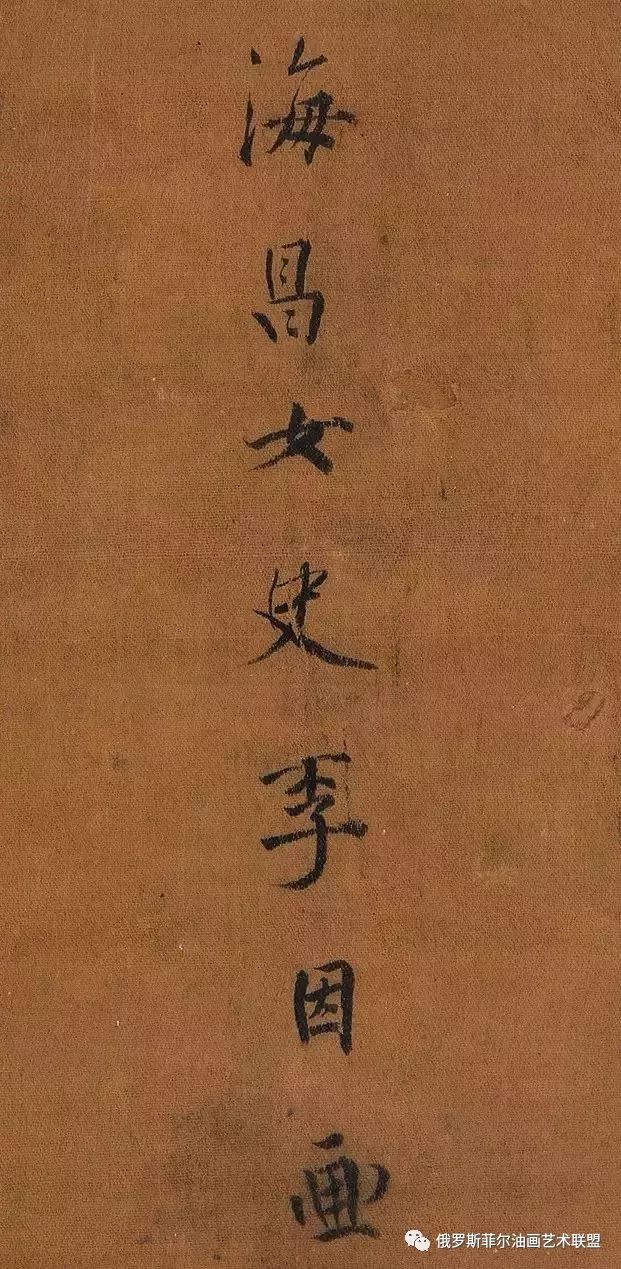 海昌女史李因画
俄罗斯菲尔油画艺术联盟